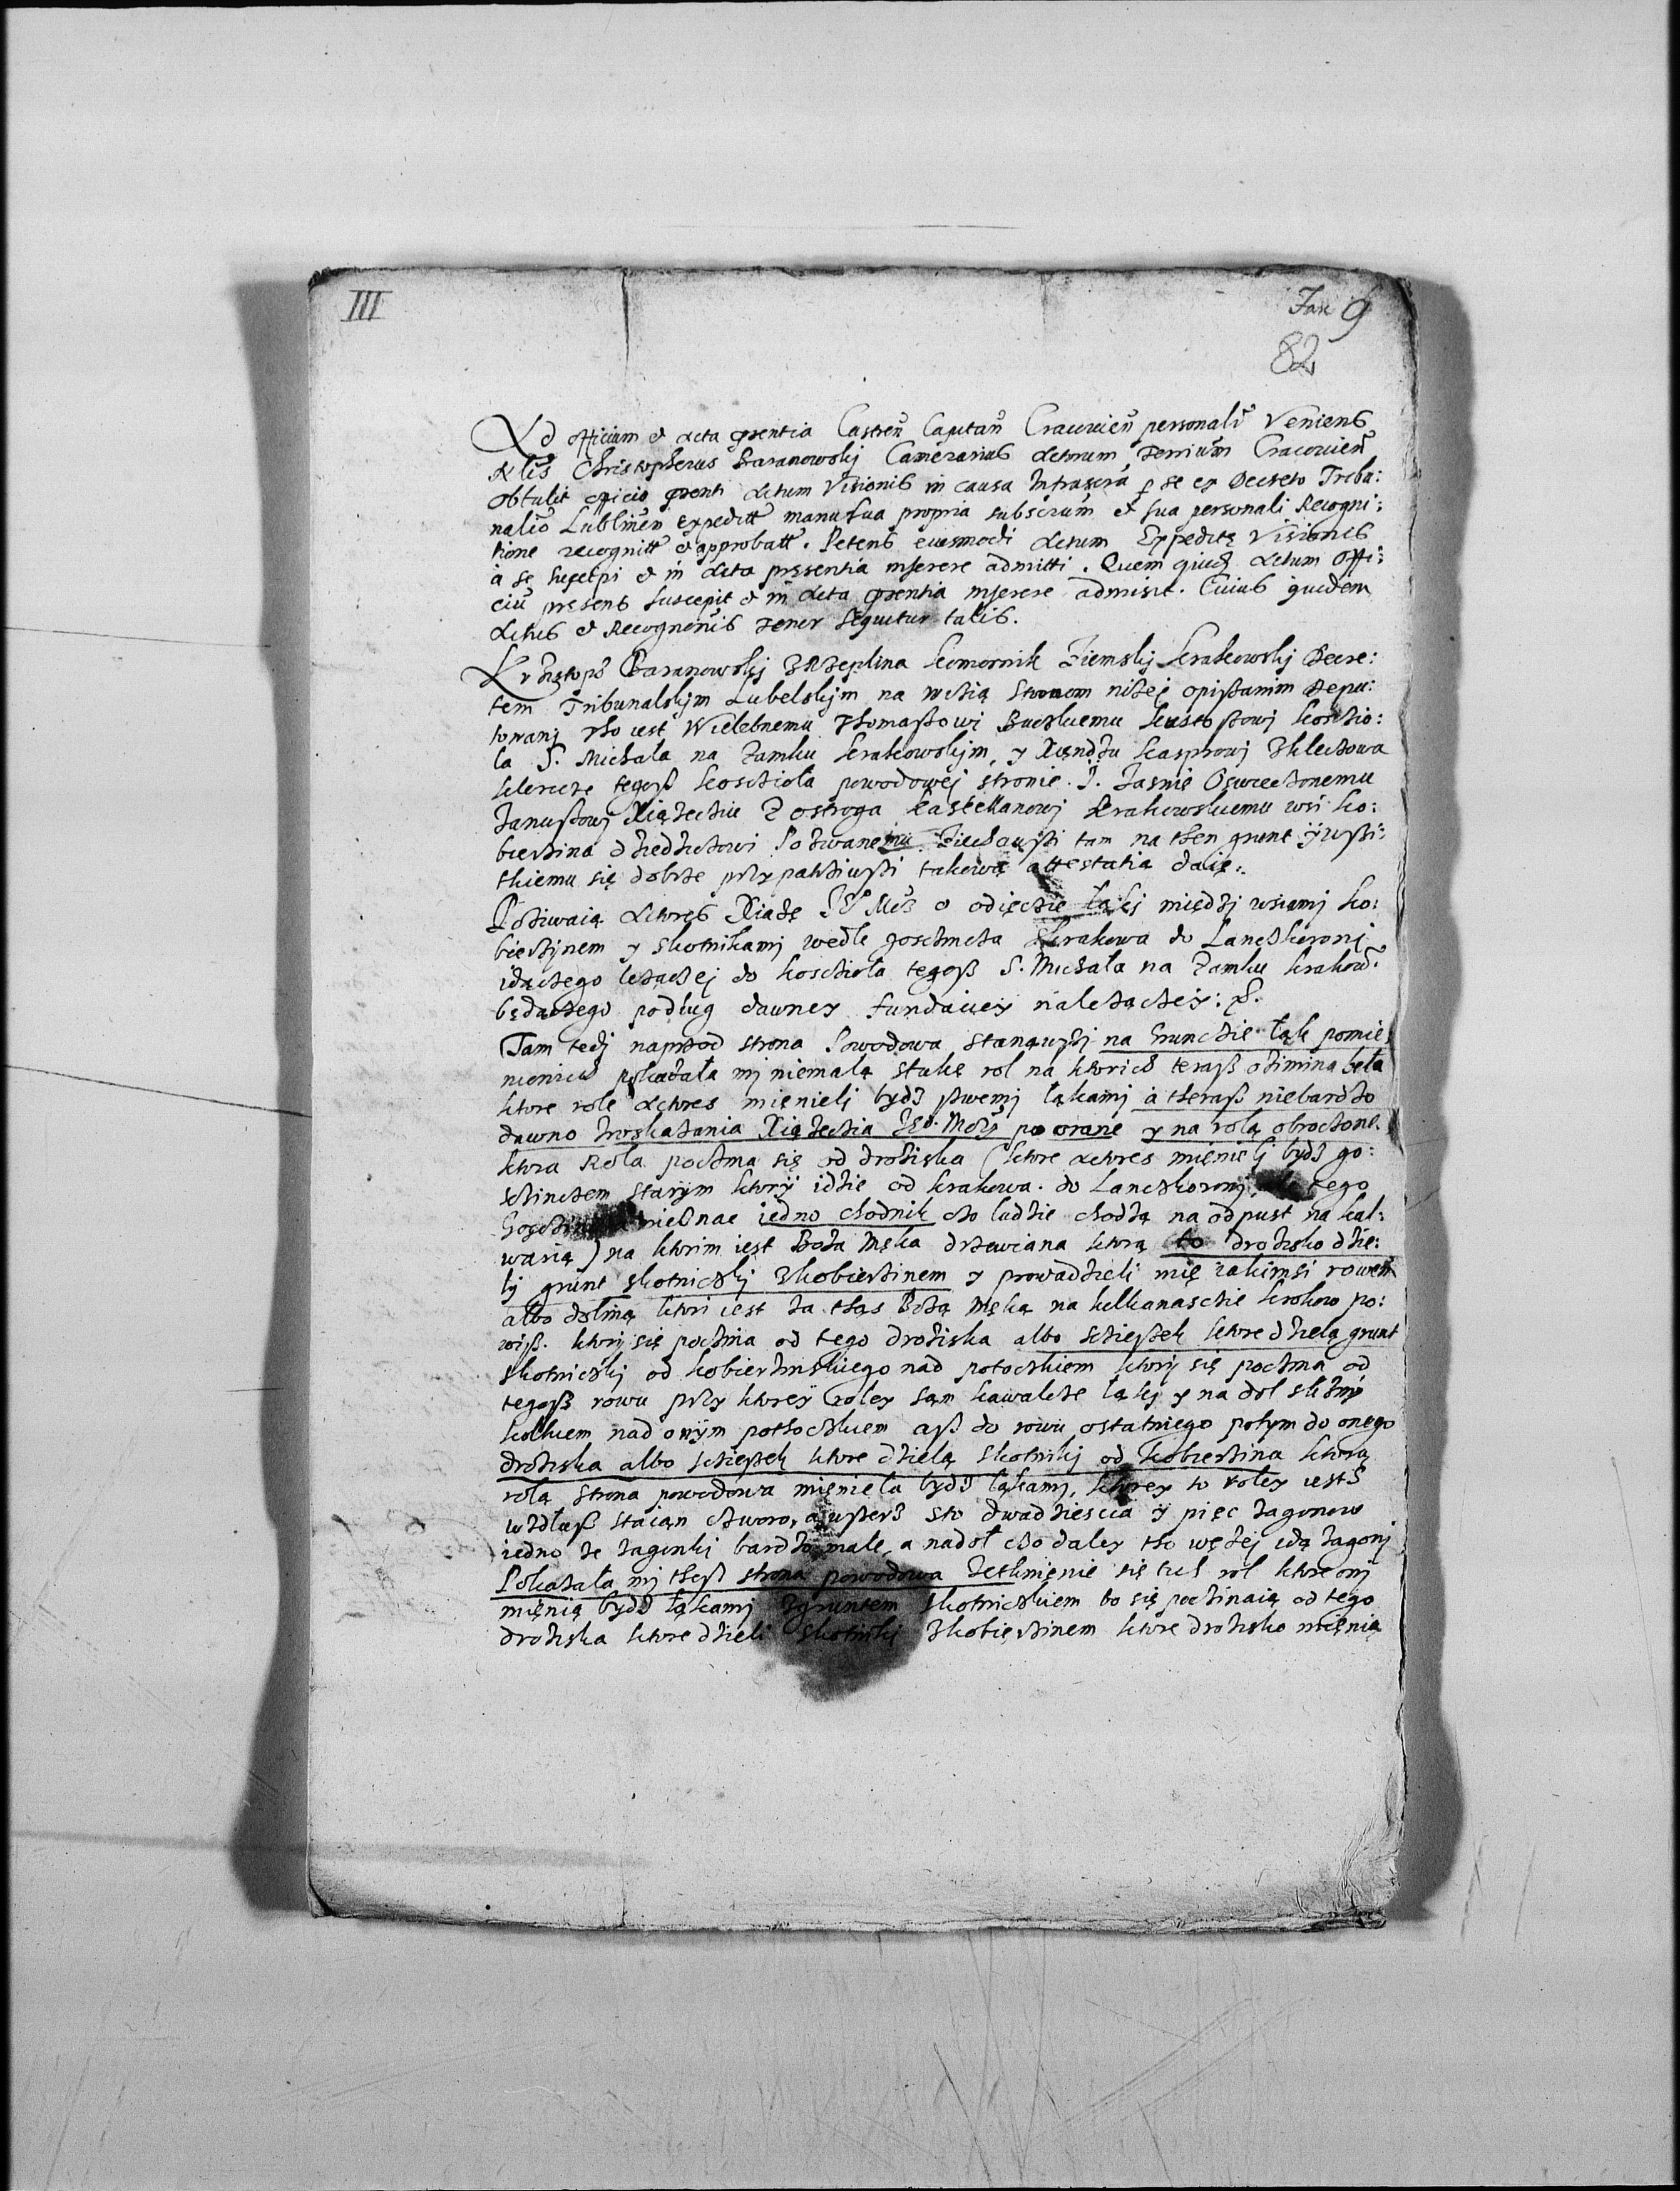 III
Fasc 9
82
Ad officium et Acta prentia Castren Capitan Cracovien personalr Veniens
Nlis Christopherus Baranowskj Camerarius Actorum Terrium Cracovien
Obtulit officio prenti Actum Visionis in causa Infrascra p se ex Decreto Tribu:
nalis Lublinen Expeditt manu sua propria subscrum et sua personali Recogni:
tione recognitt et approbatt. Petens eiusmodi Actum Expeditę Visionis
a se suscipi et in Acta pręsentia inserere admitti. Quem quidem Actum Offi:
ciu pręsens suscepit et in Acta prentia inserere admisit. Cuius quidem
Actus et Recognonis Tenor sequitur talis.
Krzisztoph Baranowskj z Rzeplina Komornik Ziemskj Krakowskj Decre:
tem Tribunalskjm Lubelskjm na wizią stronom niżej opisanim Depu:
towanj tho iest Wielebnemu Thomaszowi Kustoszowj kosczio:
la S. Michala na Zamku Krakowskjm, y Xiendzu Kasprowj z Kleczowa
klerice tegosz kosczioła powodowej stronie. J. Jasnie Oswieczonemu
Januszowj Xiążecziu z Ostroga Kastellanowj Krakowskiemu wsi Ko:
bierzina dziedziczowi Pozwanemu Ziechawszi tam na then grunt y wszi:
tkiemu się dobrze przypatrziwszi takową attestatia daię:
Poziwaią Actores Xiążę JE Mcz o odięczie łąkj międzj wsiamj Ko:
bierzynem y Skotnikamj wedle goscincza z Krakowa do Lanczkoronj
idączego leżączej do kosczioła tegosz S. Michała na Zamku Krakow.
będączego podlug dawney fundaciey należączey: &.
Tam tedj naprzod strona Powodowa stanąwszj na Gruncie łąk pomie:
nionich pokazała mj niemalą stukę rol na ktorich terasz ozimina beła
ktore role Actores mienielj bydz swemj łąkamj a therasz niebardzo
dawno z roskazania Xiążeczia JEo. Mczi poorane y na rolą obroczone.
ktora Rola poczina się od drożiska (ktore actores mienielj bydz go:
scinczem starym ktory idzie od Krakowa do Lanczkoronj, tego
nieznac iedno chodnik cżo ludzie chodżą na odpust na kal:
warią) na ktorim iest Boża Męka drzewiana ktorą to drożisko dzie:
lj grunt skotniczkj z Kobierzinem y prowadzieli mię iakimsi rowem
albo doliną ktori iest za thąs Bożą Męką na kelkanasczie krokow po:
wisz. ktorj się poczina od tego drożiska albo scieszek ktore dzielą grunt
skotniczkj od kobierzinskiego nad potoczkiem ktorj się poczina od
tegosz rowu przy ktorey roley sąm kawalcze łąkj y na doł slizmy
kolkiem nad onym pothoczkiem asz do rowu ostatniego potym do onego
drożiska albo sczieszek ktore dzielą skotnikj od kobierzina ktorą
rolą strona powodowa mieniela bydz łąkamj, ktorey to roley iest
wzdłusz staian cżworo, a wszerz sto dwadziescia y pięc zagonow
iedno że zagonki bardzo male, a nadoł cżo daley tho węzej idą zagonj
Pokazała mj thesz strona powodowa zetknienie się tich rol ktore onj
mienią bydz łąkamj z gruntem skotniczkiem bo się poczinaią od tego
drożiska ktore dzieli skotnikj z kobierzinem ktore drożisko mienią